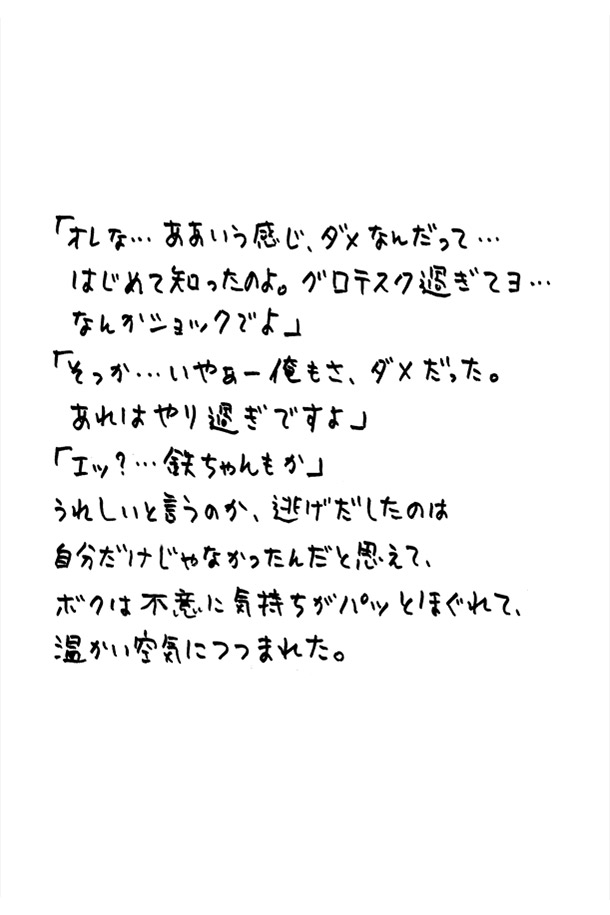 「オレな…ああいう感じ、ダメなんだって…
はじめて知ったのよ。グロテスク過ぎてヨ…
なんかショックでよ」
「そっか…いやぁー俺もさ、ダメだった。
あれはやり過ぎですよ」
「エッ?…鉄ちゃんもか」
うれしいと言うのか、逃げだしたのは
自分だけじゃなかったんだと思えて、
ボクは不意に気持ちがパッとほぐれて、
温かい空気につつまれた。